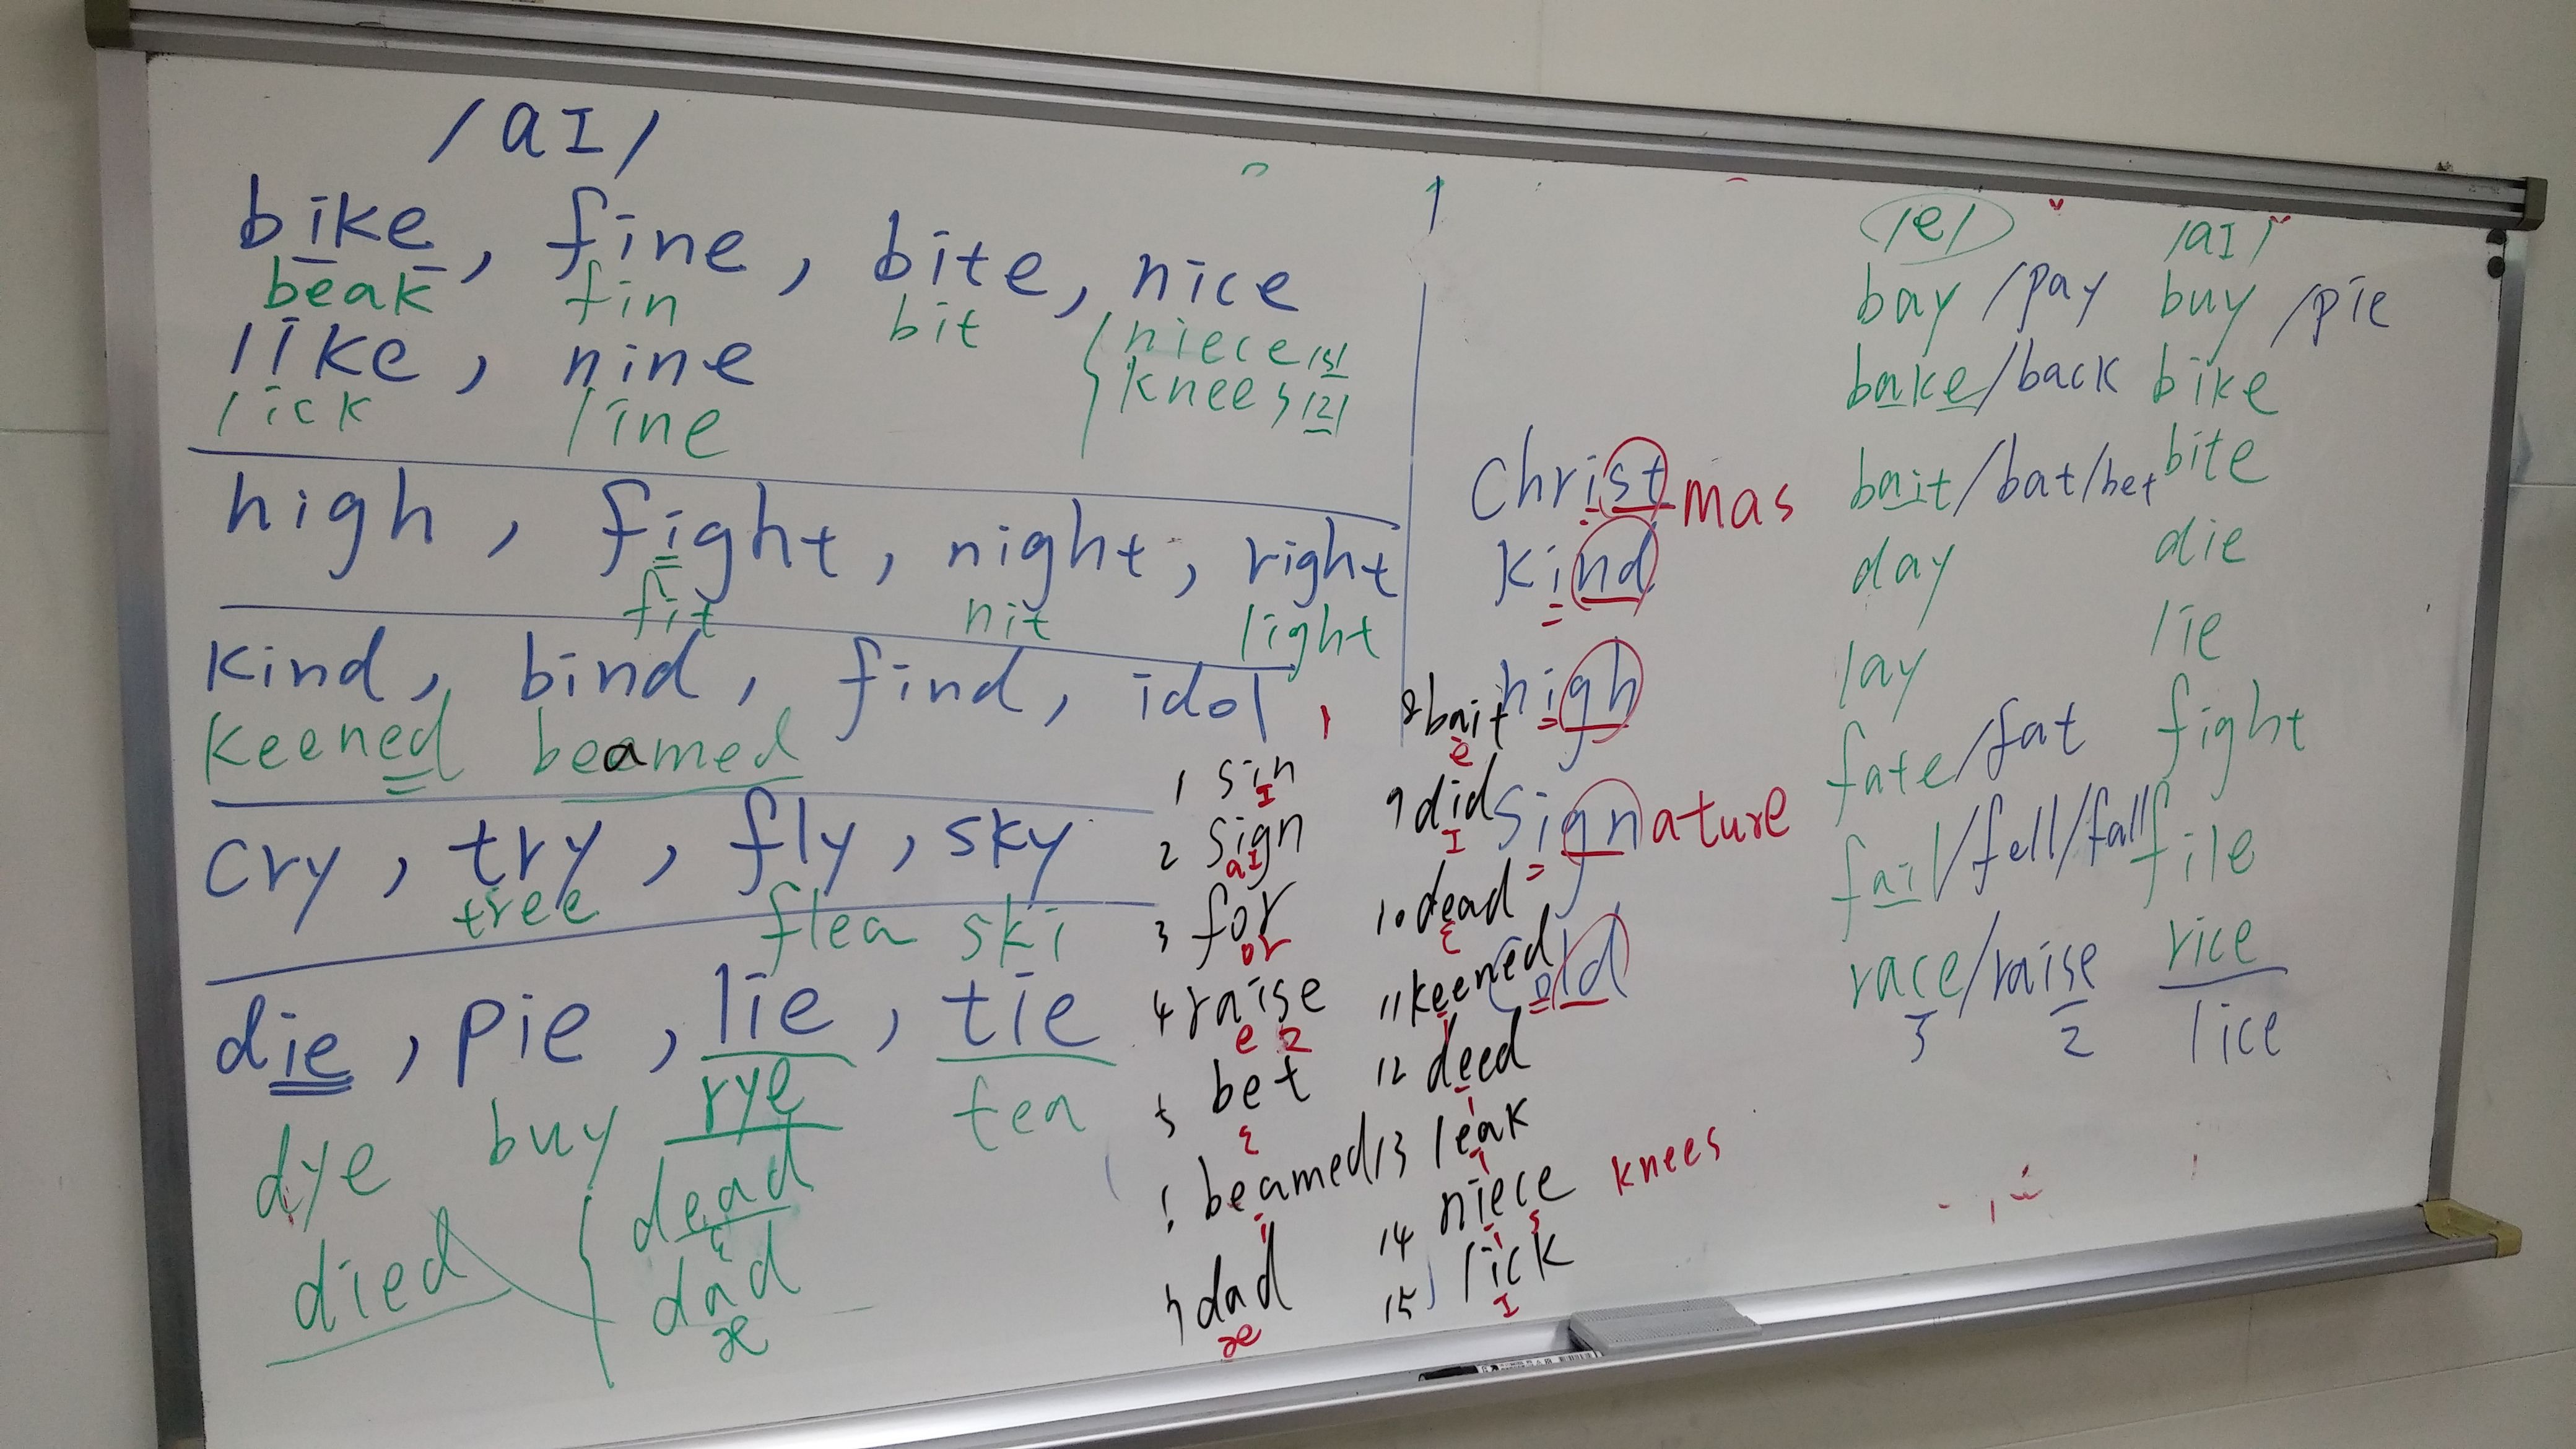 /aI/
bike, fine, bite, nice
beak fin bit niece /s/
knees /z/
like, nine
lick line
high, fight, night, right
fit nit light
kind, bind, find, idol
keened beamed
cry, try, fly, sky
tree flea ski
die, pie, lie, tie
dye buy rye tea
died dead
ɛ
dad
æ
Christmas
kind
high
signature
cold
1 sin
I
2 sign
aI
3 for
or
4 raise
e z
5 bet
ɛ
beamed
i
7 dad
æ
8 bait
e
9 did
I
10 dead
ɛ
11 keened
i
12 deed
i
13 leak
i
14 niece knees
i s
15 lick
I
/e/ /aI/
bay /pay buy /pie
bake/back bike
bait/bat/bet bite
day die
lay lie
fate/fat fight
fail/fell/fall file
race/raise rice
s z lice